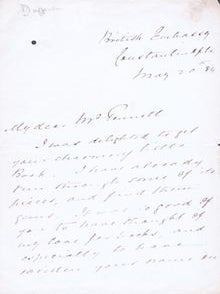 British Embassy
Constantinople
May 20th 84
My dear Mrs
I was delighted to get
your charming little
Book. I have already
run through some of its
pieces, and find them
gems. It was so good of
you to have thought of
my love for books, and
especially to have
written your name on